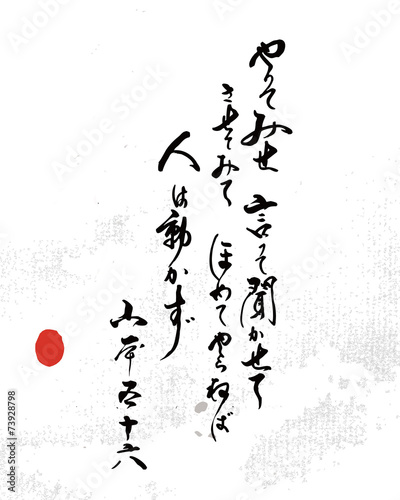 やって みせ 言って 聞かせて
させてみて ほめて やらねば
人は動かず
山本五十六
Adobe Stock | #73928798